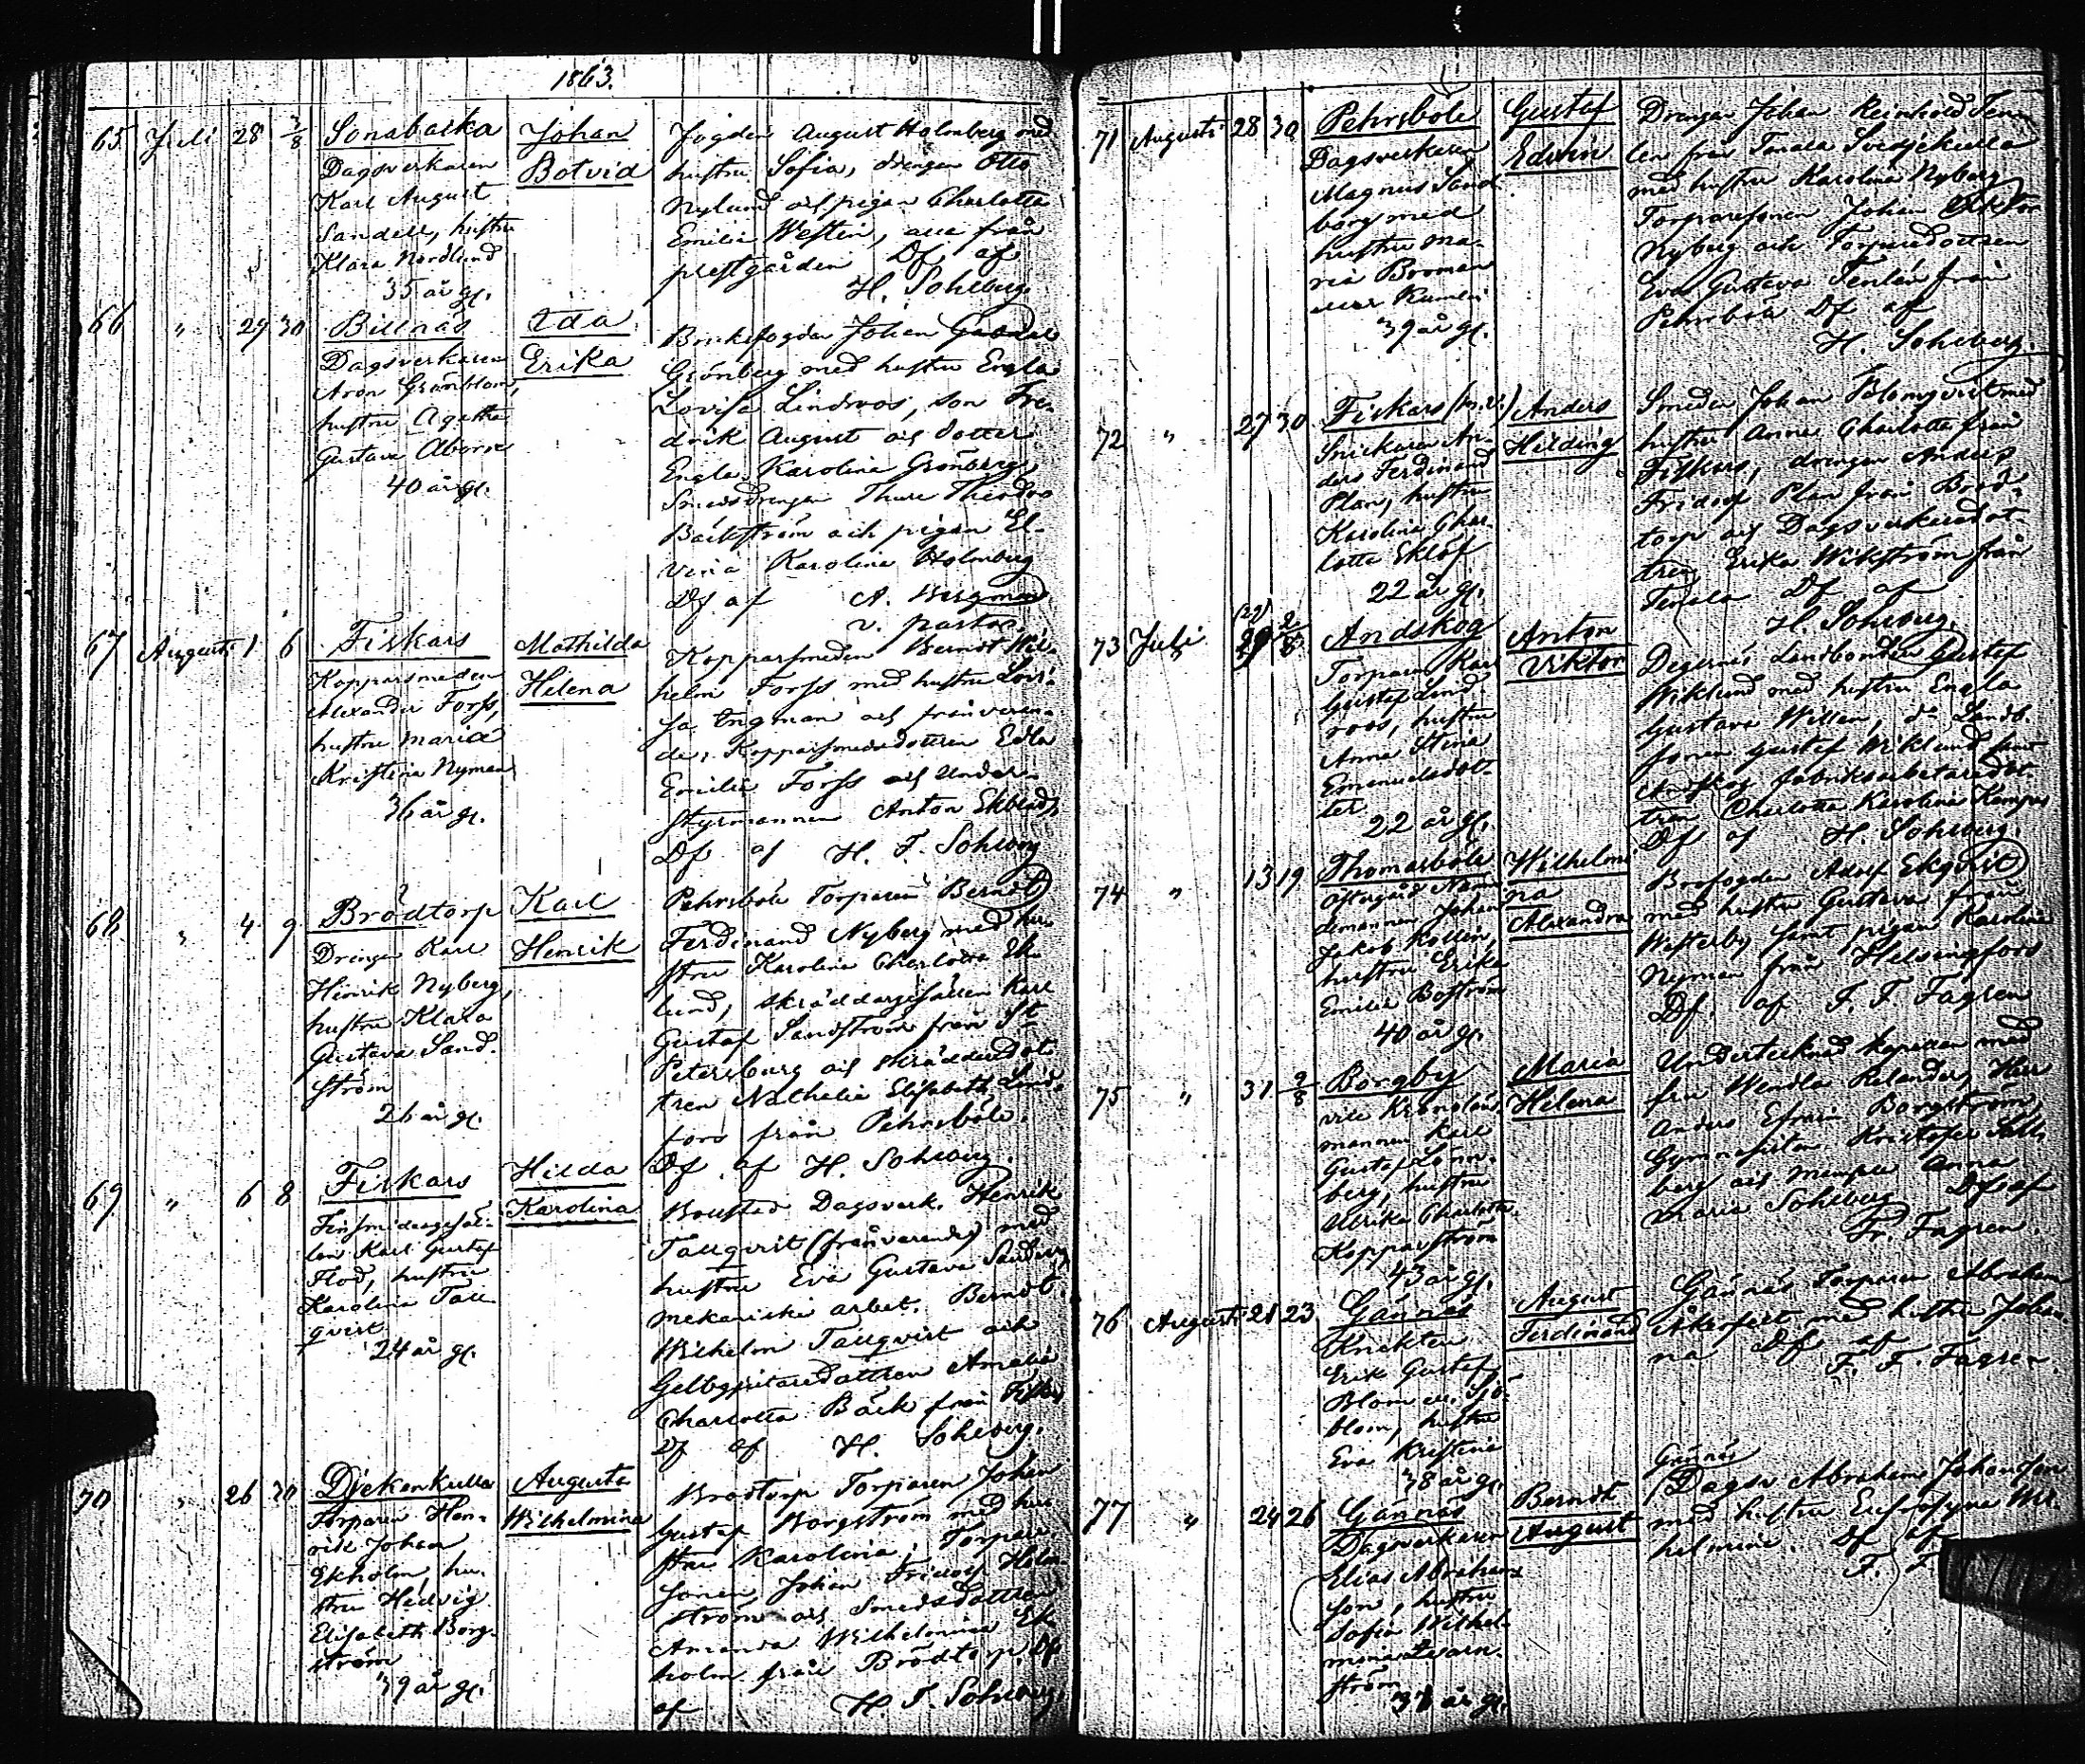 1863.
65 Juli 28 2/8 Sonabacka Johan
Dagsverkaren Botvid
Karl August
Sandell, hustru
Klara Nordlund
35 år gl.
Fogden August Holmberg med
hustru Sofia, drengen Otto
Nylund och pigan Charlotta
Emilia Westin, alla från
prestgården Df. af
H. Sohlberg.
66 " 29 30 Billnäs Ida
Dagsverkaren Erika
Aron Grönblom,
hustru Agatha
Gustava
40 år gl.
Bruksfogden Johan
Grönberg med hustru Engla
Lovisa Lindroos, son Fre-
drik August och dotter
Engla Karolina Grönberg,
Smedsdrengen Thure Theodor
Bäckström och pigan El-
vira Karolina Holmberg
Df af A. Bergman
v. pastor.
67 Augusti 1 6 Fiskars Mathilda
Kopparsmeden Helena
Alexander Forss,
hustru Maria
Kristina Nyman
36 år gl.
Kopparsmeden Berndt Wil-
helm Forss med hustru Lovi-
sa Engman och frånvaran-
de: Kopparsmedsdottren Edla
Emilia Forss och Under-
styrmannen Anton Ekblad,
Df af H. F. Sohlberg
68 " 4 9 Brödtorp Karl
Drengen Karl Henrik
Henrik Nyberg,
hustru Klara
Gustava Sand-
ström
26 år gl.
Pehrsböle Torparen Berndt
Ferdinand Nyberg med hu-
stru Karolina Charlotta Ek-
lund, skräddargesällen Karl
Gustaf Sandström från St
Petersburg och skräddaredot-
tren Nathalia Elisabeth Lind-
fors från Pehrsböle.
Df. af H. Sohlberg.
69 " 6 8 Fiskars Hilda
Finsmidesgesäl- Karolina
len Karl Gustaf
Flod, hustru
Karolina Tall-
qvist
24 år gl.
Dagsverk. Henrik
Tallqvist (frånvarande) med
hustru Eva Gustava
mekaniske arbet. Berndt
Wilhelm Tallqvist och
Gelbgjutaredottren Amalia
Charlotta Bäck från Fiskars
Df af H. Sohlberg.
70 " 26 30 Djekenkulla Augusta
Torparen Hen- Wilhelmina
rik Johan
Ekholm, hu-
stru Hedvig
Elisabeth Borg-
ström
39 år gl.
Brödtorp Torparen Johan
Gustaf Borgström med hu-
stru Karolina, Torpare-
sonen Johan Fridolf Holm-
ström och Smedsdottren
Amanda Wilhelmina Ek-
holm från Brödtorp. Df
af H. F. Sohlberg.
71 Augusti 28 30 Pehrsböle Gustaf
Dagsverkaren Edvin
Magnus Sand-
borg med
hustru Ma-
ria Broman
eller Rumlin
39 år gl.
Drengen Johan Reinhold Ten-
lén från Tenala
med hustru Karolina Nyberg,
Torparesonen Johan Viktor
Nyberg och Torparedottren
Eva Gustava Tenlén från
Pehrsböle Df af
H. Sohlberg.
72 " 27 30 Fiskars Anders
Snickaren An- Hilding
ders Ferdinand
Plan, hustru
Karolina Char-
lotta Eklöf
22 år gl.
Smeden Johan Blomqvist med
hustru Anna Charlotta från
Fiskars, drengen Anders
Fridolf Plan från Bröd-
torp och Dagsverkaredot-
tren Erika Wikström från
Tenala Df af
H Sohlberg.
73 Juli 29 2/8 Andskog Anton
Torparen Karl Viktor
Gustaf Lind-
roos, hustru
Anna Stina
Emanuelsdot-
ter
22 år gl.
Degernäs Landbonden Gustaf
Wiklund med hustru Engla
Gustava Willen, d:o Landb.
sonen Gustaf Wiklund samt
Andskog fabriksarbetaredot-
tren Charlotta Karolina
Df af H. Sohlberg.
74 " 13 19 Thomasböle Wilhelmi-
Östergård Näm- na
demannen Johan Alexandra
Jakob Kollin,
hustru Erika
Emilia Boström
40 år gl.
Brofogden Adolf Ekqvist
med hustru Gustava från
Westerby samt pigan Karolina
Nyman från Helsingfors
Df. af F. F. Fagren
75 " 31 2/8 Borgby Maria
Helena
mannen Karl
Gustaf Lönn-
berg, hustru
Ulrika Charlotta
Kopparström
43 år gl.
Undertecknad kapellan med
fru Wendla Relander, Herr
Anders Efraim Borgström,
Gymnasisten Kristofer
berg och Anna
Maria Sohlberg Df af
Fr. Fagren.
76 Augusti 21 23 Gännäs August
Knekten Ferdinand
Erik Gustaf
Blom el. Sjö-
blom, hustru
Eva Kristina
38 år gl.
Gännäs Torparen Abraham
Åkerfelt med hustru Johan-
na Df af
F. F. Fagren.
77 " 24 26 Gännäs Berndt
Dagsverkaren August
Elias Abraham-
son, hustru
Sofia Wilhel-
mina
ström
år gl.
Gännäs
Dagsv Abraham Johansson
med hustru Eufrosyne Wil-
helmina. Df af
F. F.